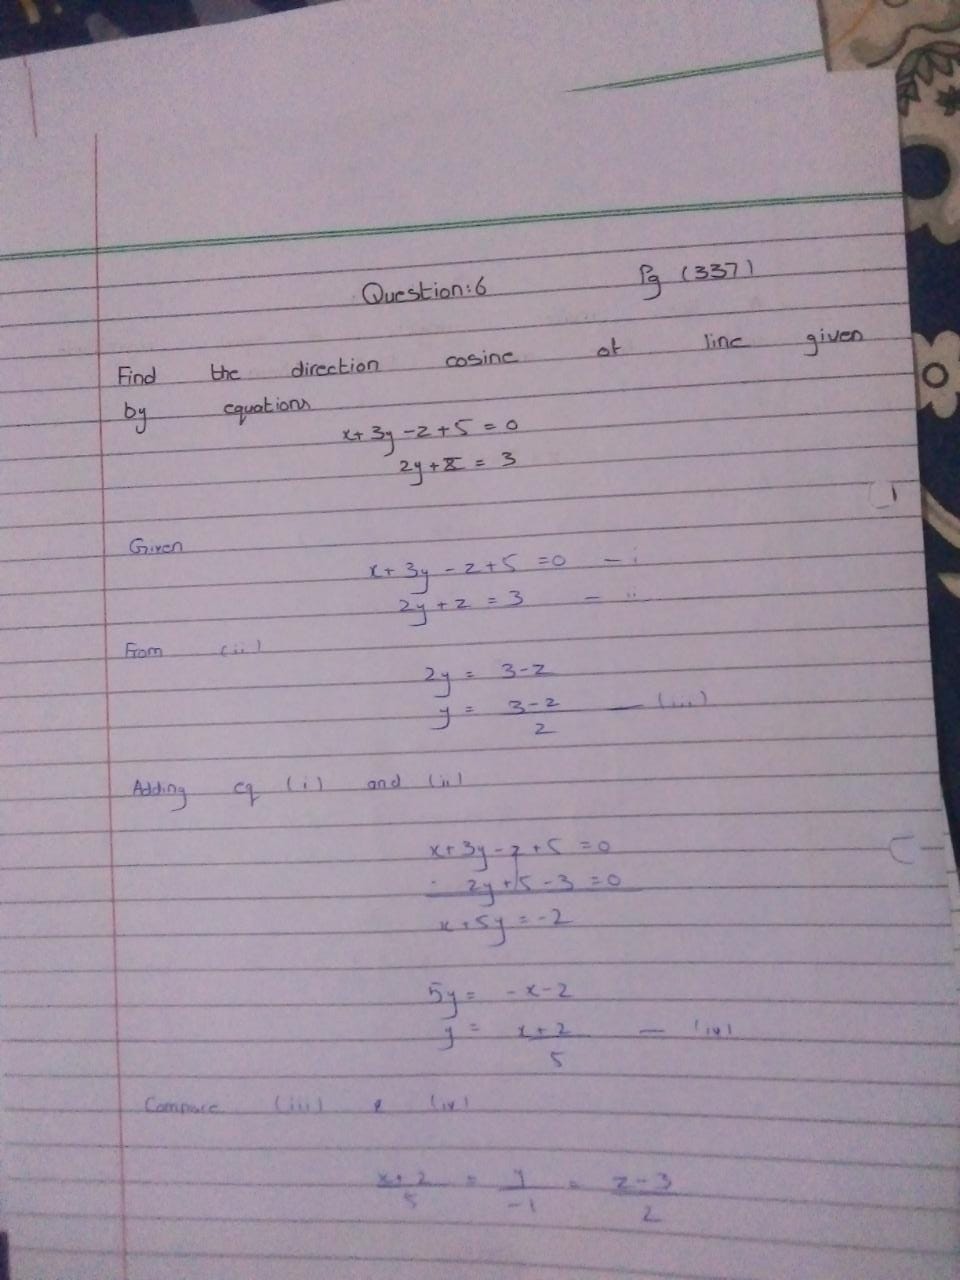 Question:6 Pg (337)
Find the direction cosine of line given
by equations
x+3y-z+5=0
2y+z=3
Given
x+3y-z+5=0 - i
2y+z=3 - ii
From (ii)
2y = 3-z
y = 3-z/2 — (iii)
Adding eq (i) and (ii)
x+3y-z+5=0
2y+5-3=0
x+5y=-2
5y= -x-2
y = x+2/5 — (iv)
Compare (iii) & (iv)
x+2/5 = y/-1 = z-3/2